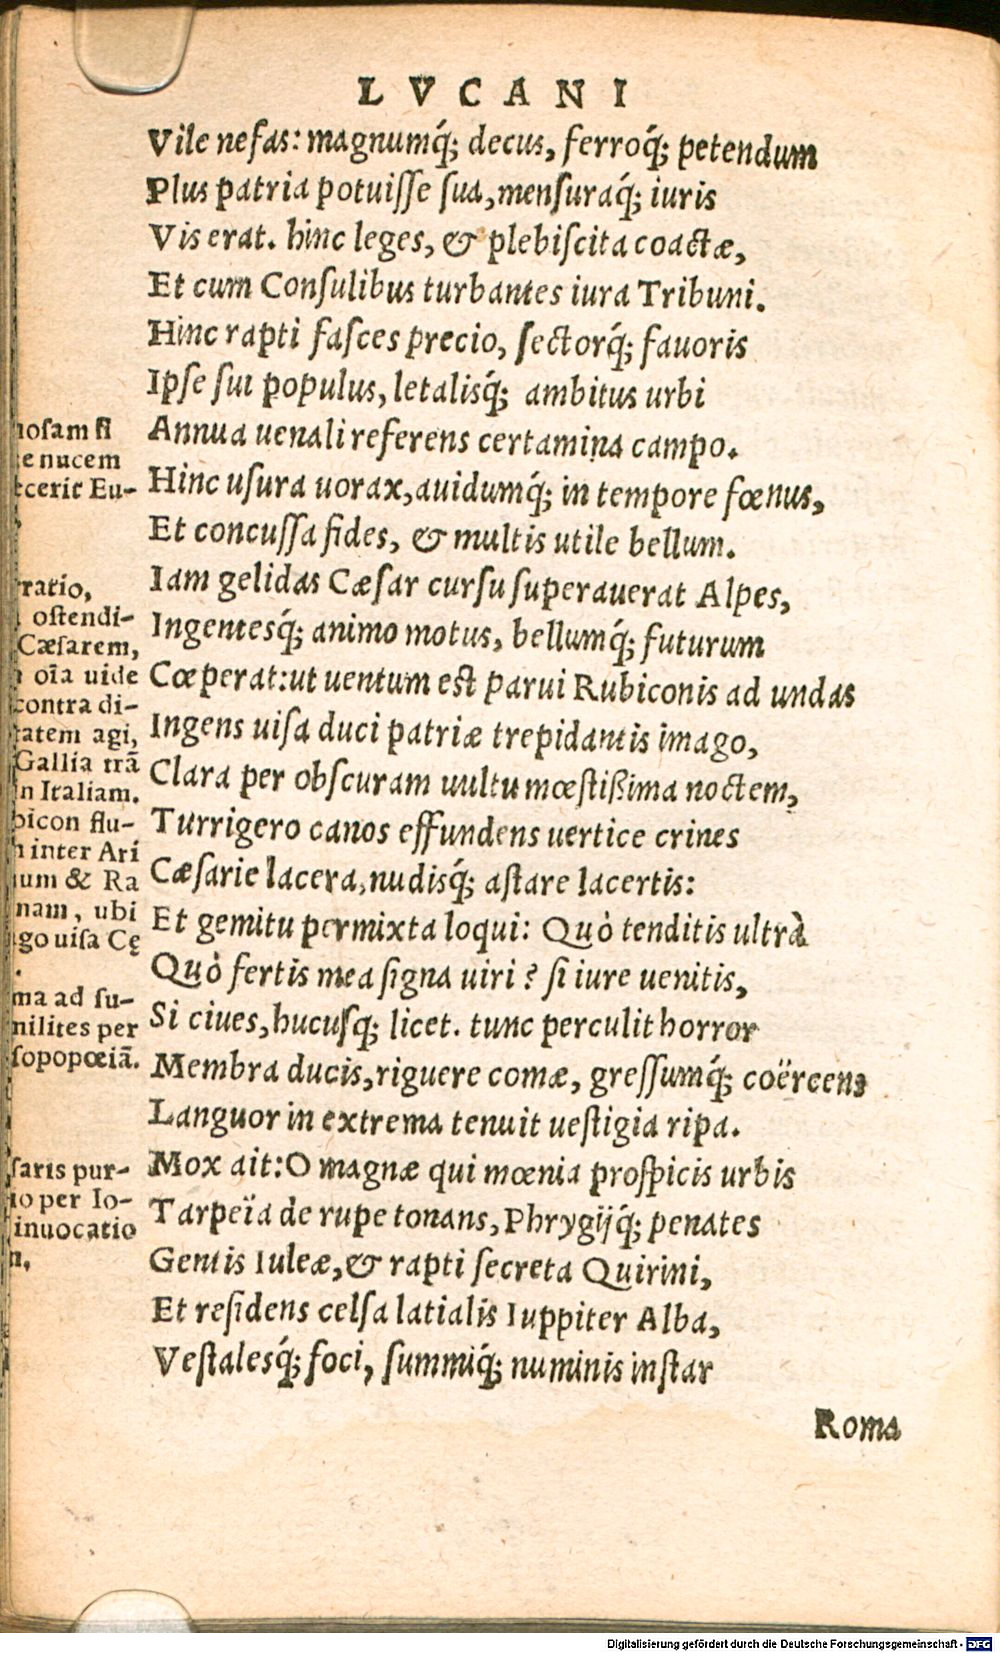 LVCANI
Vile nefas: magnumq́; decus, ferroq́; petendum
Plus patria potuiſſe ſua, menſuraq́; iuris
Vis erat. hinc leges, & plebiſcita coactæ,
Et cum Conſulibus turbantes iura Tribuni.
Hinc rapti faſces precio, ſectorq́; fauoris
Ipſe ſui populus, letalisq́; ambitus urbi
Annua uenali referens certamina campo.
Hinc uſura uorax, auidumq́; in tempore fœnus,
Et concuſſa fides, & multis utile bellum.
Iam gelidas Cæſar curſu ſuperauerat Alpes,
Ingentesq́; animo motus, bellumq́; futurum
Cœperat: ut uentum est parui Rubiconis ad undas
Ingens uiſa duci patriæ trepidantis imago,
Clara per obſcuram uultu mœſtißima noctem,
Turrigero canos effundens uertice crines
Cæſarie lacera, nudisq́; aſtare lacertis:
Et gemitu permixta loqui: Quò tenditis ultrà
Quò fertis mea ſigna uiri? ſi iure uenitis,
Si ciues, hucuſq; licet. tunc perculit horror
Membra ducis, riguere comæ, greſſumq́; coërcens
Languor in extrema tenuit ueſtigia ripa.
Mox ait: O magnæ qui mœnia proſpicis urbis
Tarpeïa de rupe tonans, Phrygijq́; penates
Gentis Iuleæ, & rapti ſecreta Quirini,
Et reſidens celſa latialis Iuppiter Alba,
Veſtalesq́; foci, ſummiq́; numinis inſtar
Roma
oſam ſi
e nucem
cerit Eu-
ratio,
oſtendi-
Cæſarem,
oīa uide
contra di-
tatem agi,
Gallia trā
n Italiam.
bicon flu-
inter Ari
um & Ra
nam, ubi
go uiſa Cę
ma ad ſu-
milites per
ſopopœiā.
ſaris pur-
io per Io-
inuocatio
n,
Digitalisierung gefördert durch die Deutsche Forschungsgemeinschaft - DFG